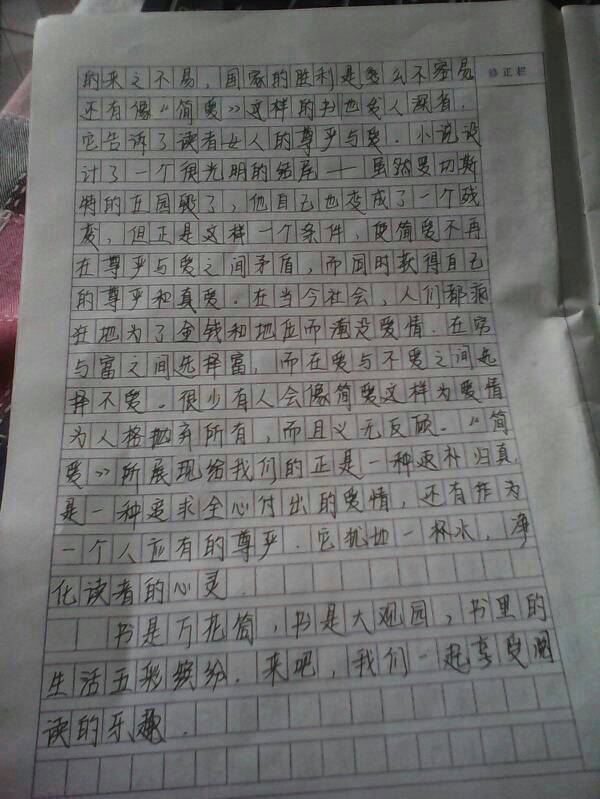 的来之不易，国家的胜利是多么不容易 修正栏
还有像“简爱》这样的书也发人深省，
它告诉了读者女人的尊严与爱．小说设
计了一个很光明的结尾——虽然罗切斯
特的庄园毁了，他自己也变成了一个残
废，但正是这样一个条件，使简爱不再
在尊严与爱之间矛盾，而同时获得自己
的尊严和真爱．在当今社会，人们都疯
狂地为了金钱和地位而淹没爱情．在穷
与富之间选择富，而在爱与不爱之间选
择不爱。很少有人会像简爱这样为爱情
为人格抛弃所有，而且义无反顾．“简
爱》所展现给我们的正是一种返朴归真，
是一种追求全心付出的爱情，还有作为
一个人应有的尊严．它犹地一杯水，净
化读者的心灵．
书是万花筒，书是大观园，书里的
生活五彩缤纷．来吧，我们一起享受阅
读的乐趣．